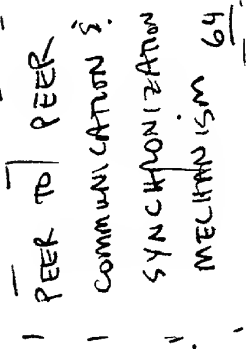 PEER TO PEER
COMMUNICATION &
SYNCHRONIZATION
MECHANISM 64